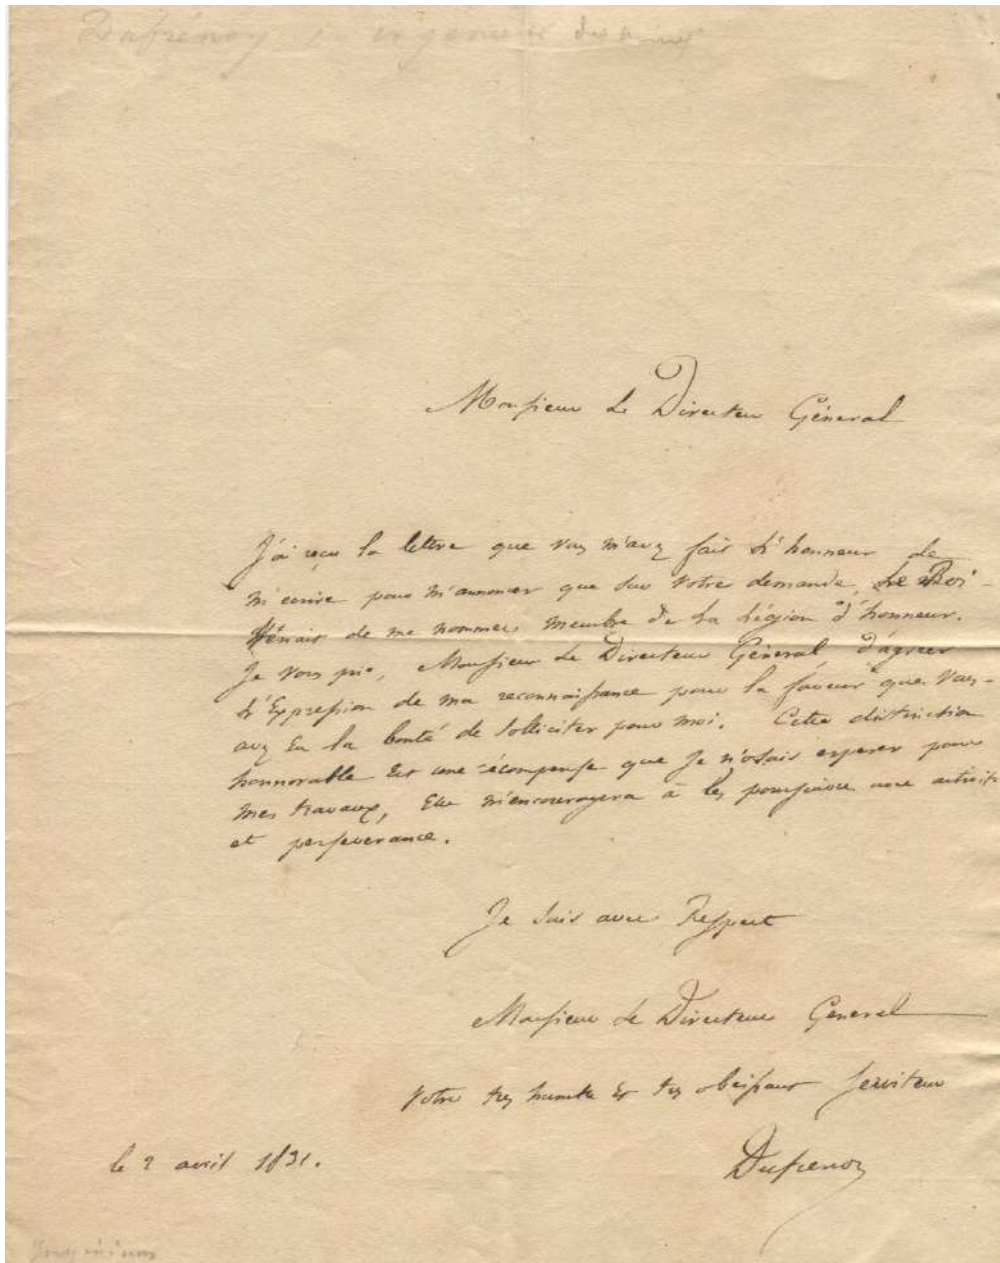 Dufrénoy ingenieur des mines
Monsieur Le Directeur Général
J'ai reçu la lettre que vous m'avez fait l'honneur de
m'écrire pour m'annoncer que sur votre demande, Le Roi
venait de me nommer membre de La Légion d'honneur.
Je vous prie, Monsieur Le Directeur Général, d'agréer
L'Expression de ma reconnaissance pour la faveur que Vous
avez Eu la bonté de solliciter pour moi. Cette distinction
honnorable Est une récompense que Je n'osais esperer pour
mes travaux, Elle m'encouragera à les poursuivre avec activité
et perseverance.
Je suis avec Respect
Monsieur Le Directeur General
Votre très humble Et très obeissant serviteur
le 2 avril 1831. Dufrenoy